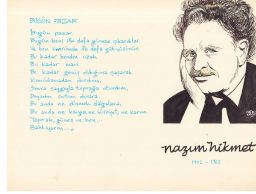 BUGÜN PAZAR
Bugün pazar.
Bugün beni ilk defa güneşe çıkardılar.
Ve ben ömrümde ilk defa gökyüzünün
Bu kadar benden uzak
Bu kadar mavi
Bu kadar geniş olduğuna şaşarak
Kımıldanmadan durdum.
Sonra saygıyla toprağa oturdum,
Dayadım sırtımı duvara.
Bu anda ne düşmek dalgalara,
Bu anda ne kavga, ne hürriyet, ne karım.
Toprak, güneş ve ben...
Bahtiyarım...
nazım hikmet
1902 - 1963